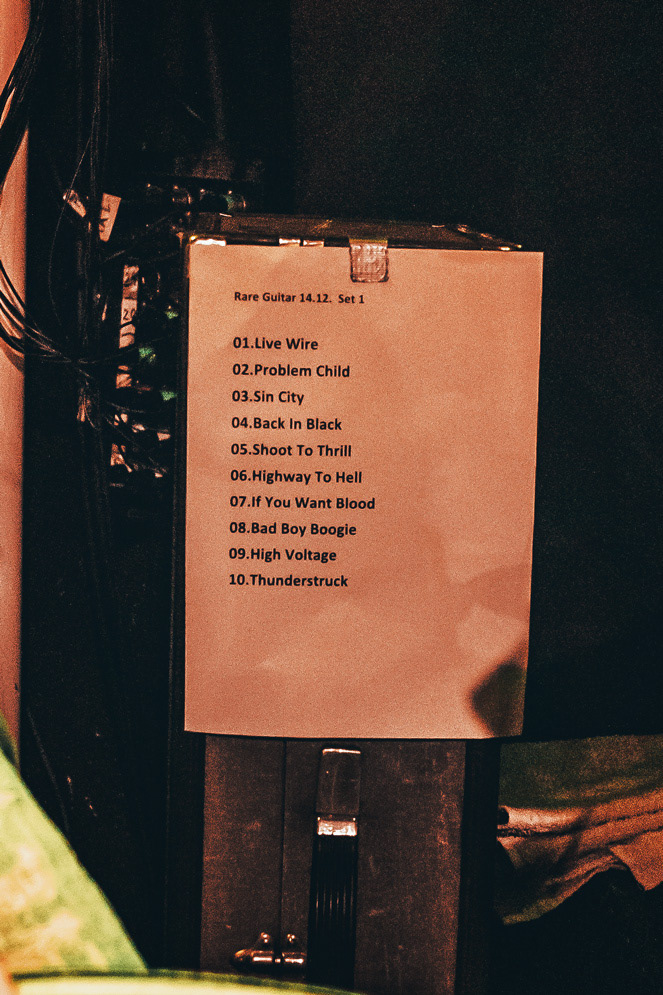 Rare Guitar 14.12. Set 1
01.Live Wire
02.Problem Child
03.Sin City
04.Back In Black
05.Shoot To Thrill
06.Highway To Hell
07.If You Want Blood
08.Bad Boy Boogie
09.High Voltage
10.Thunderstruck